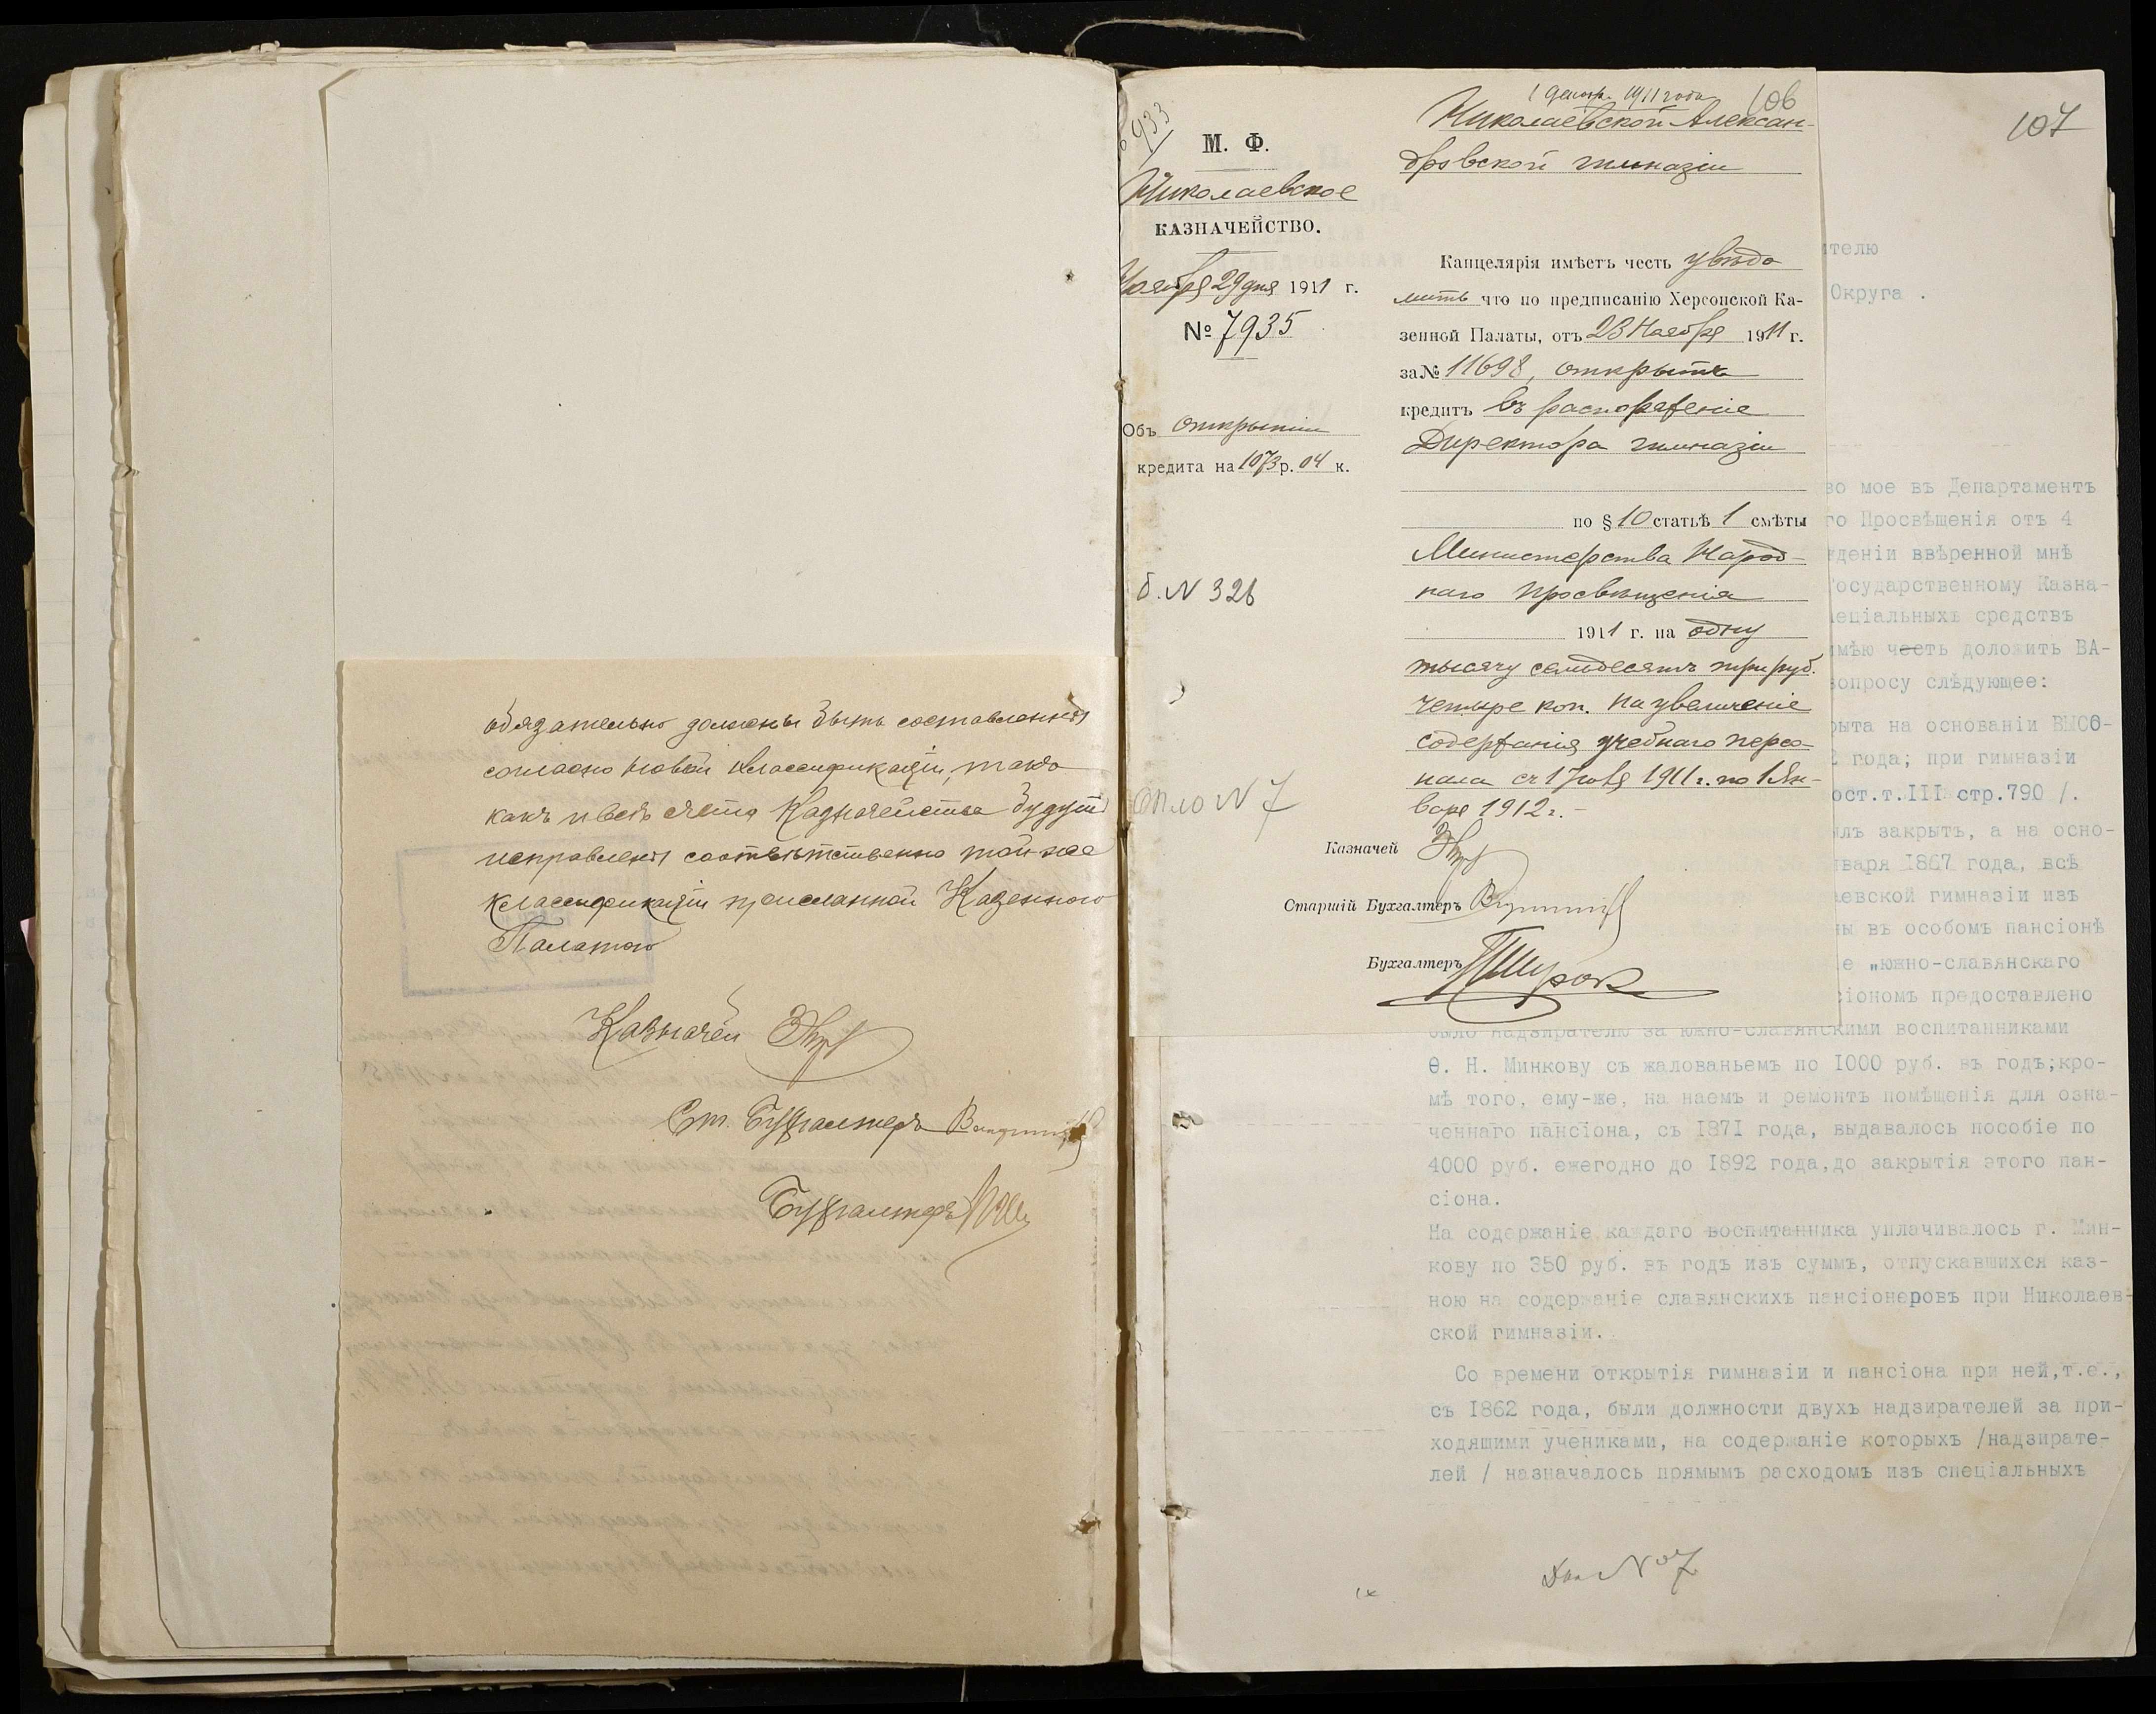 обязательно должны быть составлены
согласно новой классификаціи, такъ
какъ и всѣ счета Казначейства будутъ
исправлены соотвѣтственно той-же
классификаціи присланной Казенною
Палатою
Казначей
Ст. Бухгалтеръ
Бухгалтеръ
1 декабр. 1911 года
106
933
М. Ф.
Николаевское
КАЗНАЧЕЙСТВО.
Ноября 29 дня 1911 г.
№ 7935
Объ открытіи
кредита на 1073 р. 04 к.
б. N 326
N 7
Николаевской Алексан-
дровской гимназіи
Канцелярія имѣетъ честь увѣдо
мить что по предписанію Херсонской Ка-
зенной Палаты, отъ 23 Ноября 1911 г.
за № 11698, открытъ
кредитъ въ распоряженіе
Директора гимназіи
по § 10 статьѣ 1 смѣты
Министерства Народ-
наго Просвѣщенія
1911 г. на одну
тысячу семьдесятъ три руб.
четыре коп. на увеличеніе
содержанія учебнаго персо-
нала съ 1 Іюля 1911 г. по 1 Ян-
варя 1912 г. -
Казначей
Старшій Бухгалтеръ
Бухгалтеръ
107
ителю
Округа .
во мое въ Департаментъ
го Просвѣщенія отъ 4
деніи ввѣренной мнѣ
Государственному Казна-
еціальныхъ средствъ
имѣю честь доложить ВА-
вопросу слѣдующее:
рыта на основаніи ВЫСО-
2 года; при гимназіи
ост.т.III стр.790 /.
илъ закрытъ, а на осно-
нваря 1867 года, всѣ
аевской гимназіи изъ
ны въ особомъ пансіонѣ
е „южно-славянскаго
сіономъ предоставлено
было надзирателю за южно-славянскими воспитанниками
Ѳ. Н. Минкову съ жалованьемъ по 1000 руб. въ годъ;кро-
мѣ того, ему-же, на наемъ и ремонтъ помѣщенія для озна-
ченнаго пансіона, съ 1871 года, выдавалось пособіе по
4000 руб. ежегодно до 1892 года,до закрытія этого пан-
сіона.
На содержаніе каждаго воспитанника уплачивалось г. Мин-
кову по 350 руб. въ годъ изъ суммъ, отпускавшихся каз-
ною на содержаніе славянскихъ пансіонеровъ при Николаев-
ской гимназіи.
Со времени открытія гимназіи и пансіона при ней,т.е.,
съ 1862 года, были должности двухъ надзирателей за при-
ходящими учениками, на содержаніе которыхъ /надзирате-
лей / назначалось прямымъ расходомъ изъ спеціальныхъ
N 7